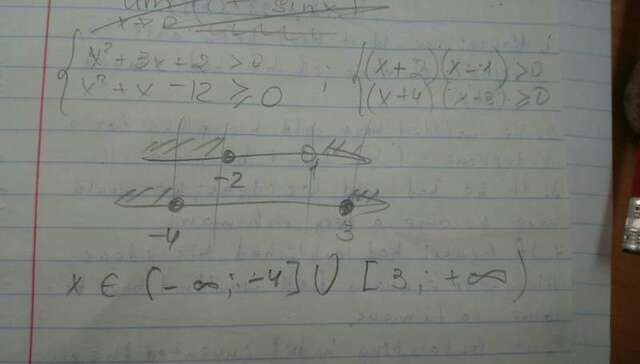 x² + 3x + 2 > 0 ; (x+2)(x-1) > 0
x² + x - 12 ≥ 0 (x+4)(x+3) ≥ 0
-2 1
-4 3
x ∈ (-∞; -4] ∪ [3; +∞)